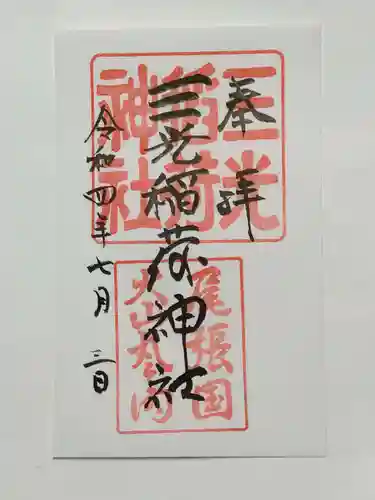 奉拝
三光稲荷神社
令和四年七月三日
三光
稲荷
神社
尾張国
犬山城内